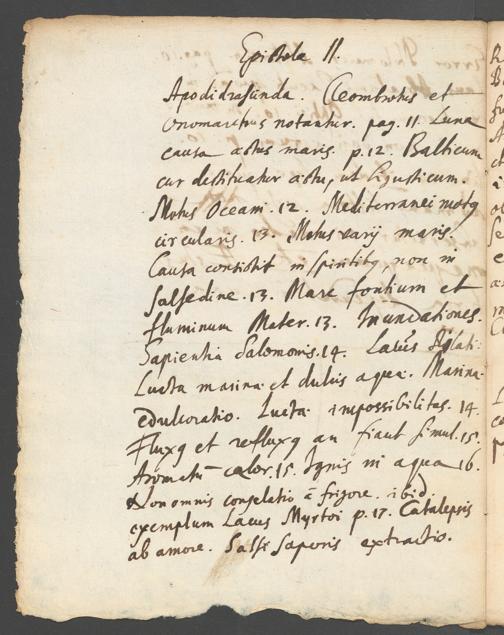 Epistola II.
Apodidrasunda. Cleombrotus et
Onomacritus notantur. pag. 11. Luna
causa æstus maris. p. 12. Balticum
cur destituatur æstu, ut Ligusticum.
Motus Oceani. 12. Mediterranei motq
circularis. 13. Motus varij maris.
Causa consistit in spiritiq, non in
salsedine. 13. Mare fontium et
fluminum Mater. 13. Inundationes.
Sapientia Salomonis. 14. Lacus
Lucta marinæ et dulcis aquæ. Marinæ
edulcoratio. Luctæ impossibilitas. 14.
Fluxq et refluxq an fiant simul. 15.
Aromatū calor. 15. Ignis in aqua 16.
Non omnis congelatio à frigore. ibid.
exemplum Lacus Myrtoi p. 17. Catalepsis
ab amore. Salsi saporis extractio.